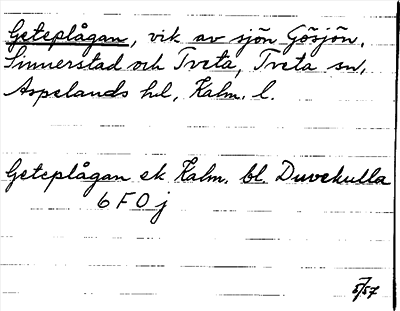 Geteplågan, vik av sjön Gösjön,
Sinnerstad och Tveta, Tveta sn,
Aspelands hd, Kalm. l.
Geteplågan ek Kalm. bl. Duvekulla
6 F O j
5/57